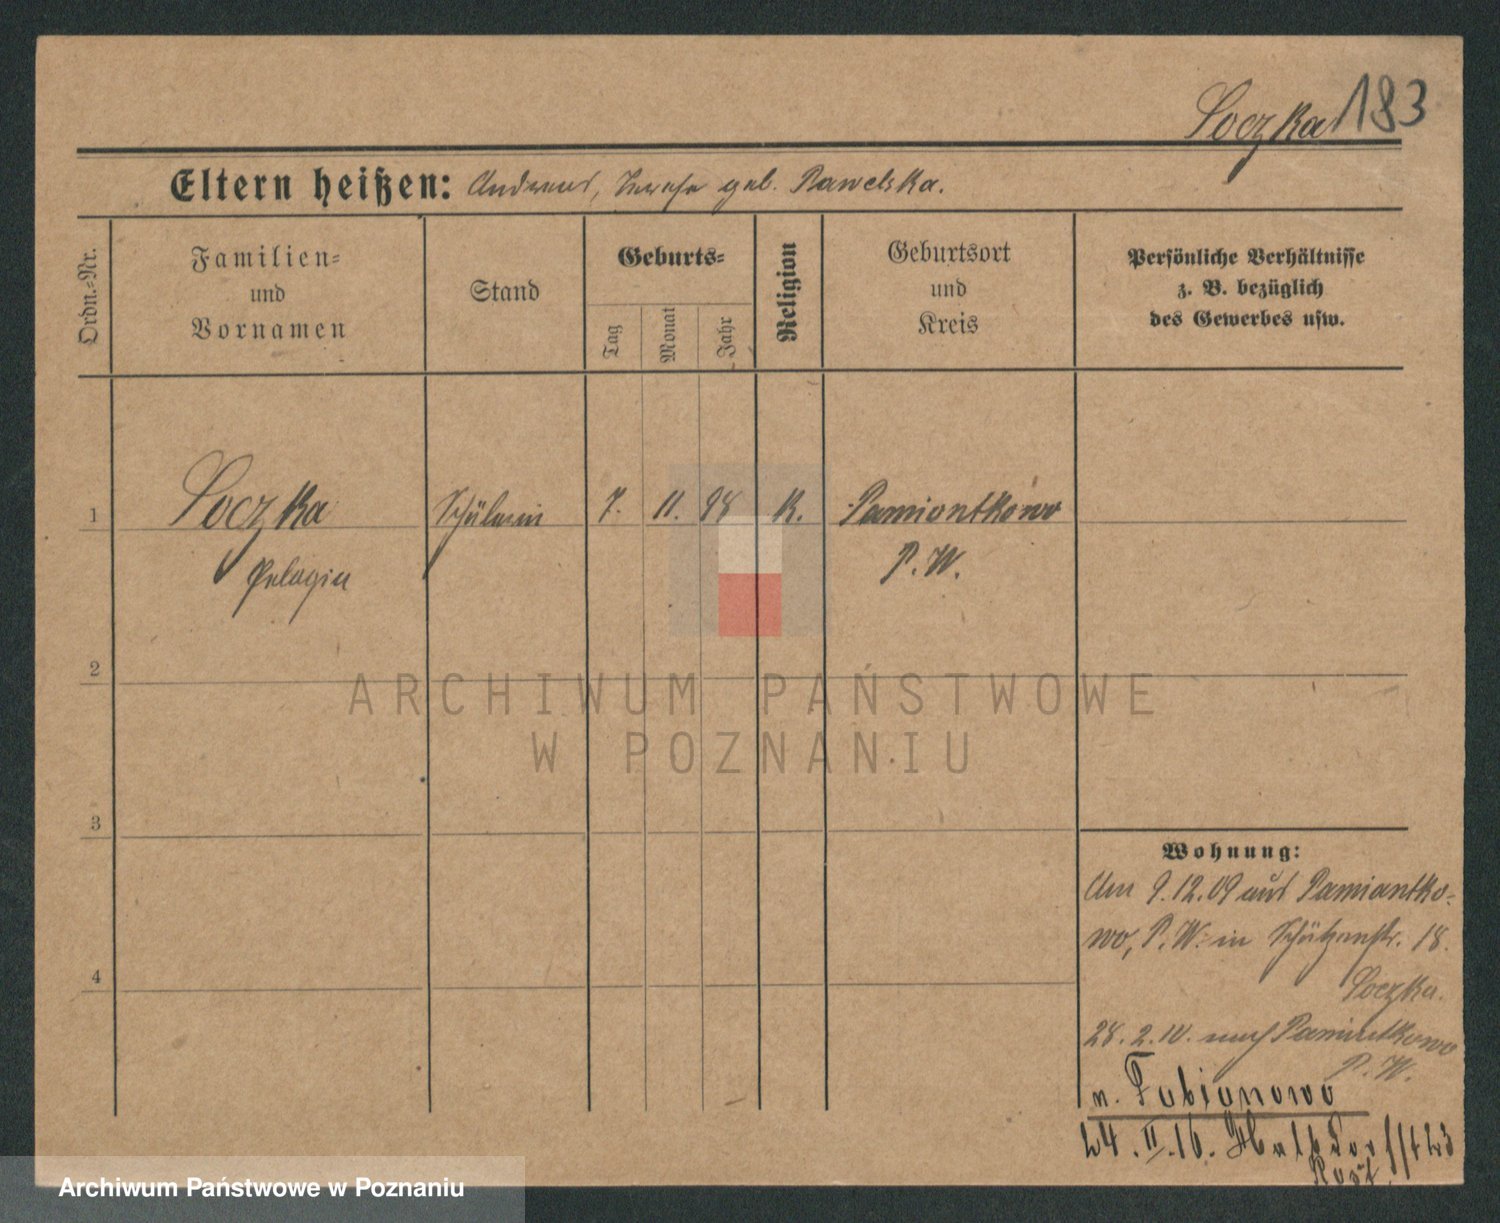 Soczka 183
Eltern heißen: Andreas, Therese geb. Pawelska.
Ordn.-Nr.
Familien-
und
Vornamen
Stand
Geburts-
Tag
Monat
Jahr
Religion
Geburtsort
und
Kreis
Persönliche Verhältnisse
z. B. bezüglich
des Gewerbes usw.
1
Soczka Schülerin 7. 11. 98 K. Pamiontkowo
Pelagia P. W.
2
3
4
Wohnung:
Am 9.12.09 aus Pamiantko-
wo, P. W. in Schützenstr. 18.
Soczka.
28. 2. 10. nach Pamiatkowo
P. W.
n. Fabianowo
24. II. 16. 23
ARCHIWUM PAŃSTWOWE
W POZNANIU
Archiwum Państwowe w Poznaniu